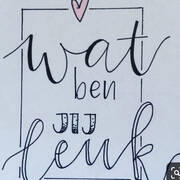 wat
ben
JIJ
leuk